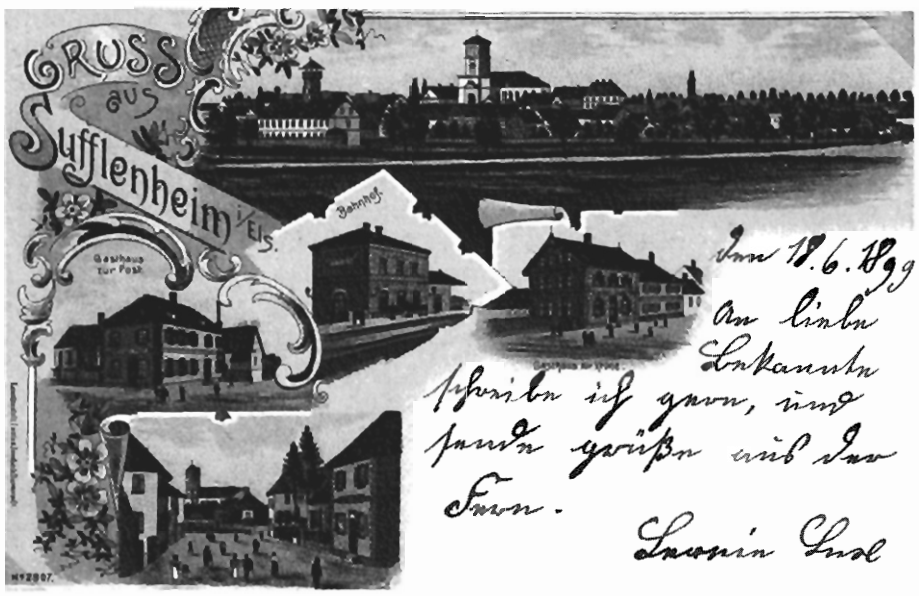 GRUSS
aus
Sufflenheim
i/Els.
Bahnhof.
Gasthaus
zur Post.
Gasthaus zur Krone.
den 18.6.1899
An liebe
Bekannte
schreibe ich gern, und
sende grüße aus der
Fern.
No 2807.